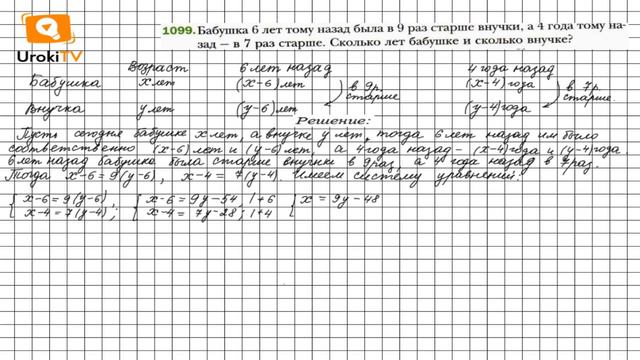 UrokiTV
1099. Бабушка 6 лет тому назад была в 9 раз старше внучки, а 4 года тому на-
зад — в 7 раз старше. Сколько лет бабушке и сколько внучке?
Возраст 6 лет назад 4 года назад
Бабушка x лет (x-6) лет в 9р. старше (x-4) года в 7р. старше.
Внучка y лет (y-6) лет (y-4) года
Решение:
Пусть сегодня бабушке x лет, а внучке y лет, тогда 6 лет назад им было
соответственно (x-6) лет и (y-6) лет, а 4 года назад - (x-4) года и (y-4) года
6 лет назад бабушка была старше внучки в 9 раз, а 4 года назад в 7 раз.
Тогда x-6=9(y-6), x-4=7(y-4). Имеем систему уравнений:
{ x-6=9(y-6), { x-6=9y-54, |+6 { x=9y-48
{ x-4=7(y-4); { x-4=7y-28; |+4 {